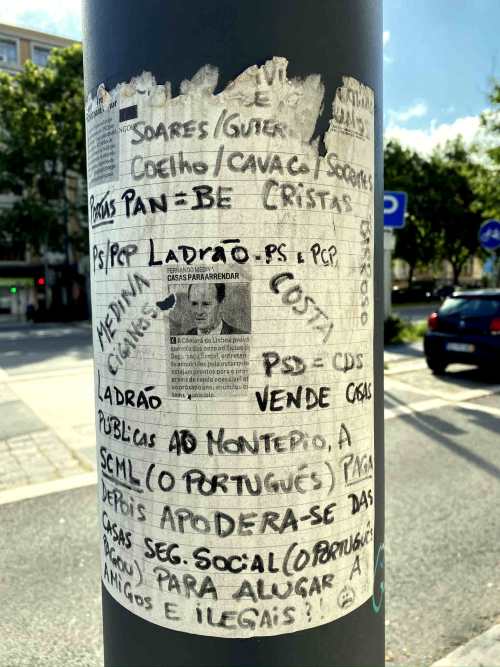 E
SOARES/GUTER
COELHO/CAVACO/SOCRATES
PORTAS PAN=BE CRISTAS
BARROSO
PS/PCP LADRÃO.PS E PCP
FERNANDO MEDINA
CASAS PARA ARRENDAR
MEDINA
CIGANOS
COSTA
PSD=CDS
LADRÃO VENDE CASAS
PÚBLICAS AO MONTEPIO, A
SCML (O PORTUGUÊS) PAGA
DEPOIS APODERA-SE DAS
CASAS SEG. SOCIAL (O PORTUGUÊS
PAGOU) PARA ALUGAR A
AMIGOS E ILEGAIS?!
P